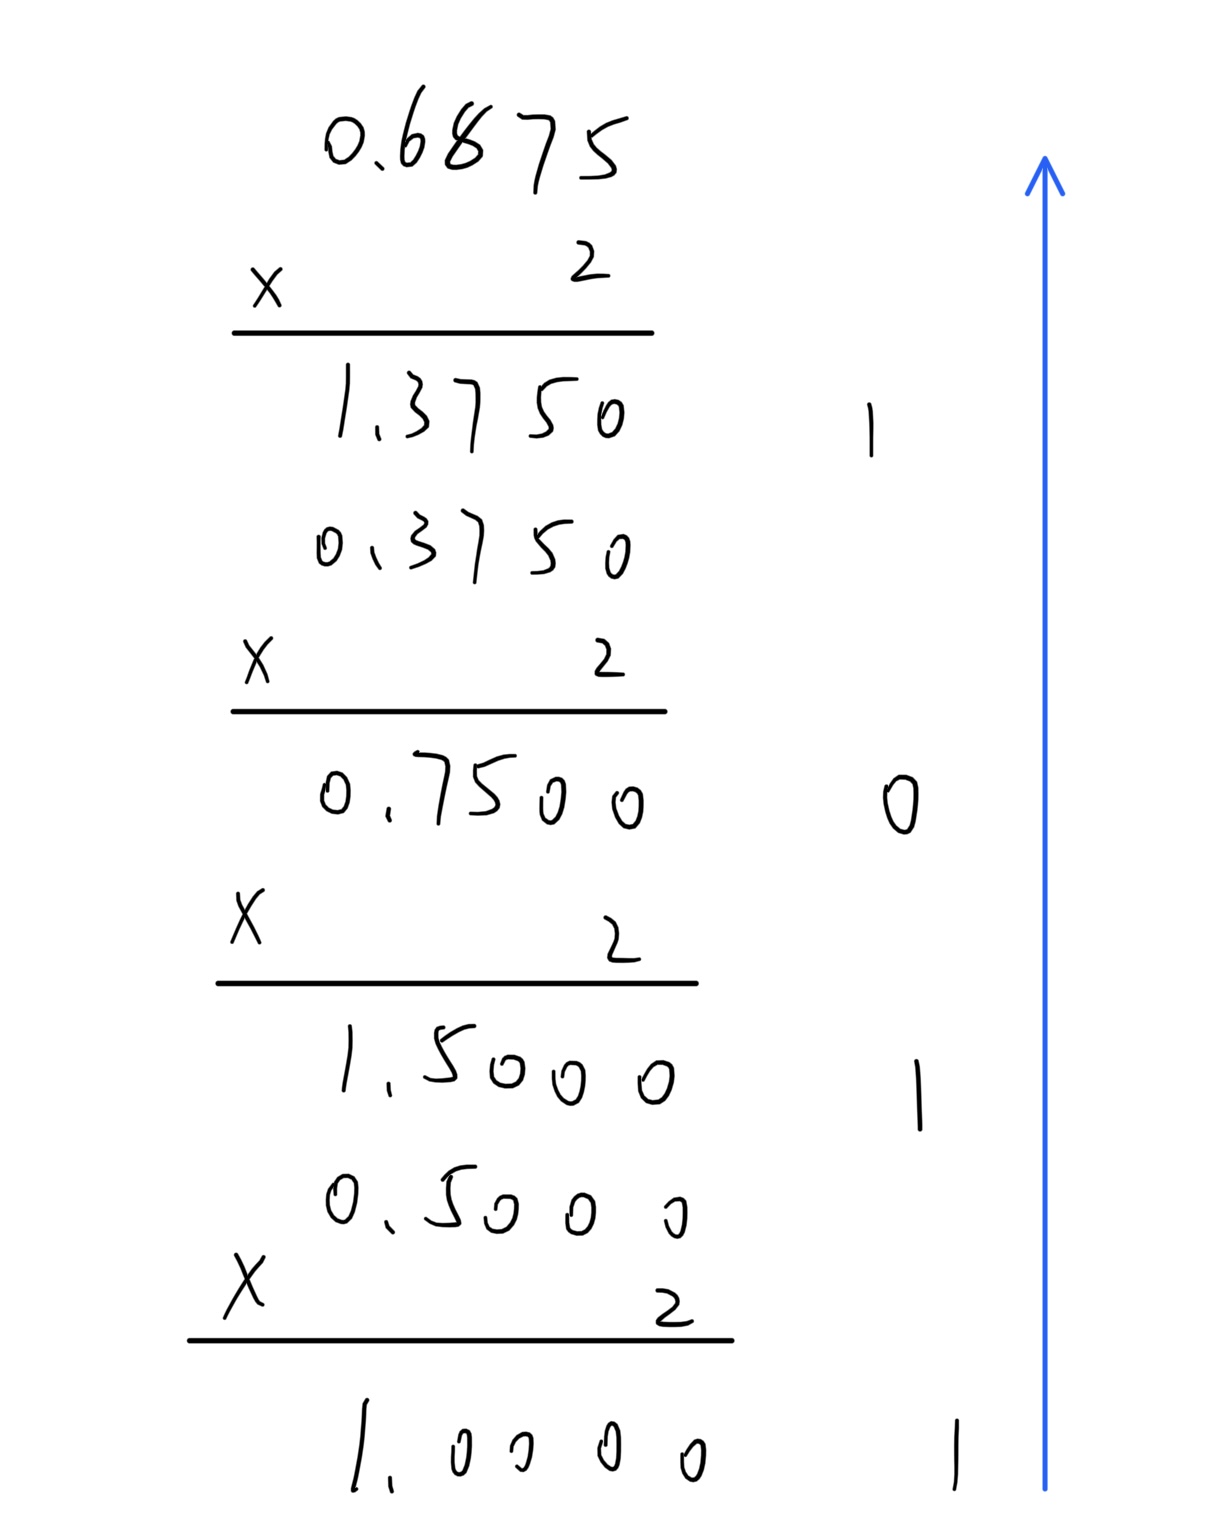 0.6875
x 2
1.3750 1
0.3750
x 2
0.7500 0
x 2
1.5000 1
0.5000
x 2
1.0000 1